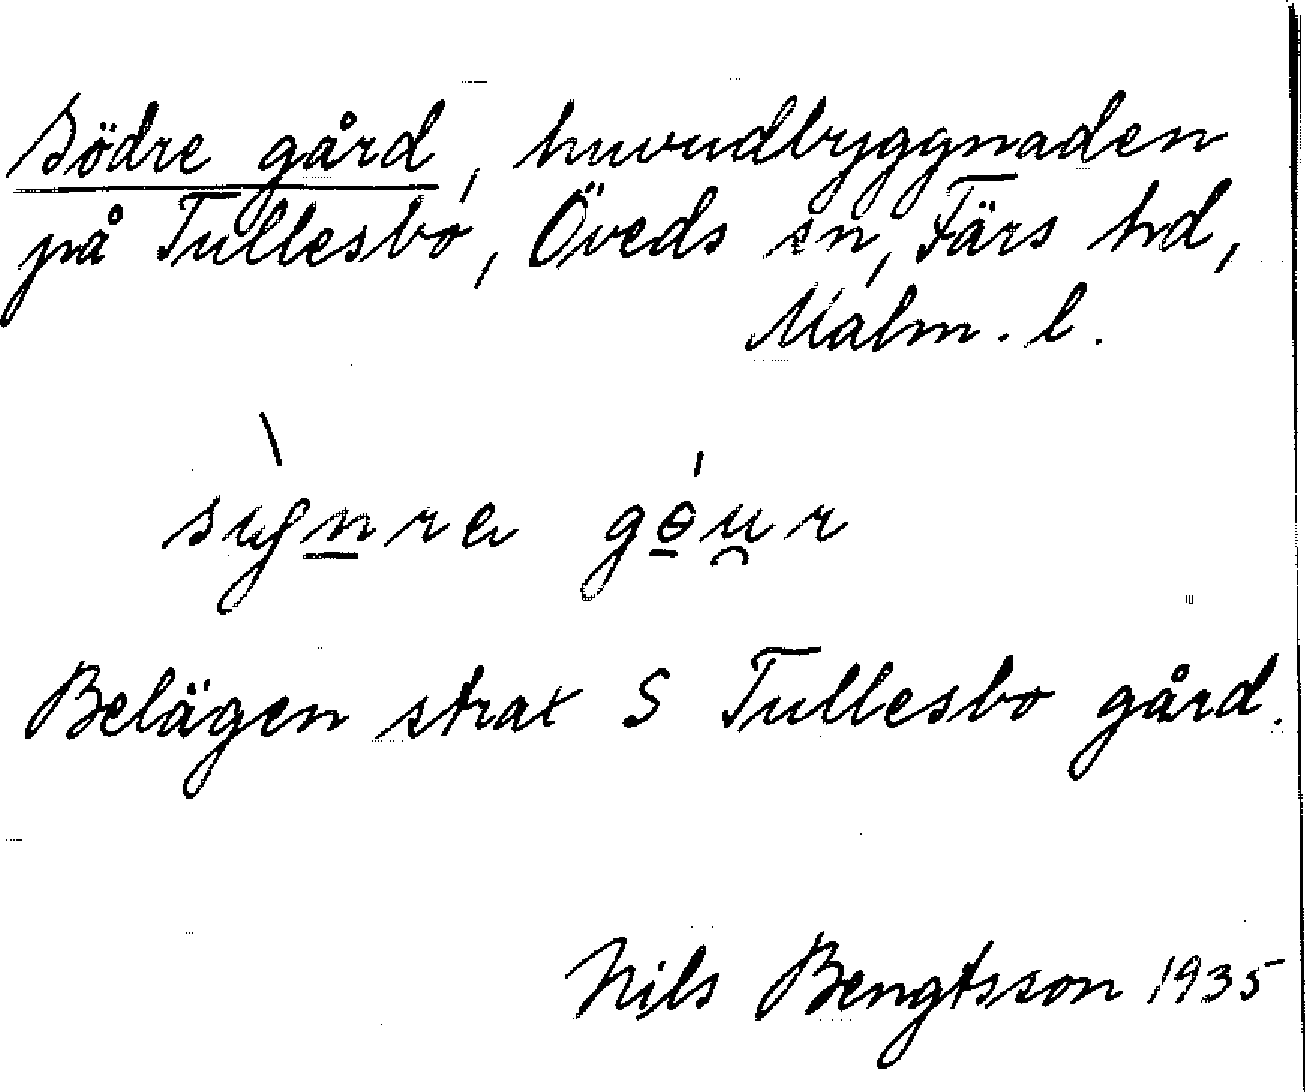 Södre gård, huvudbyggnaden
på Tullesbo, Öveds sn, Färs hd,
Malm. l.
Belägen strax S Tullesbo gård.
Nils Bengtsson 1935